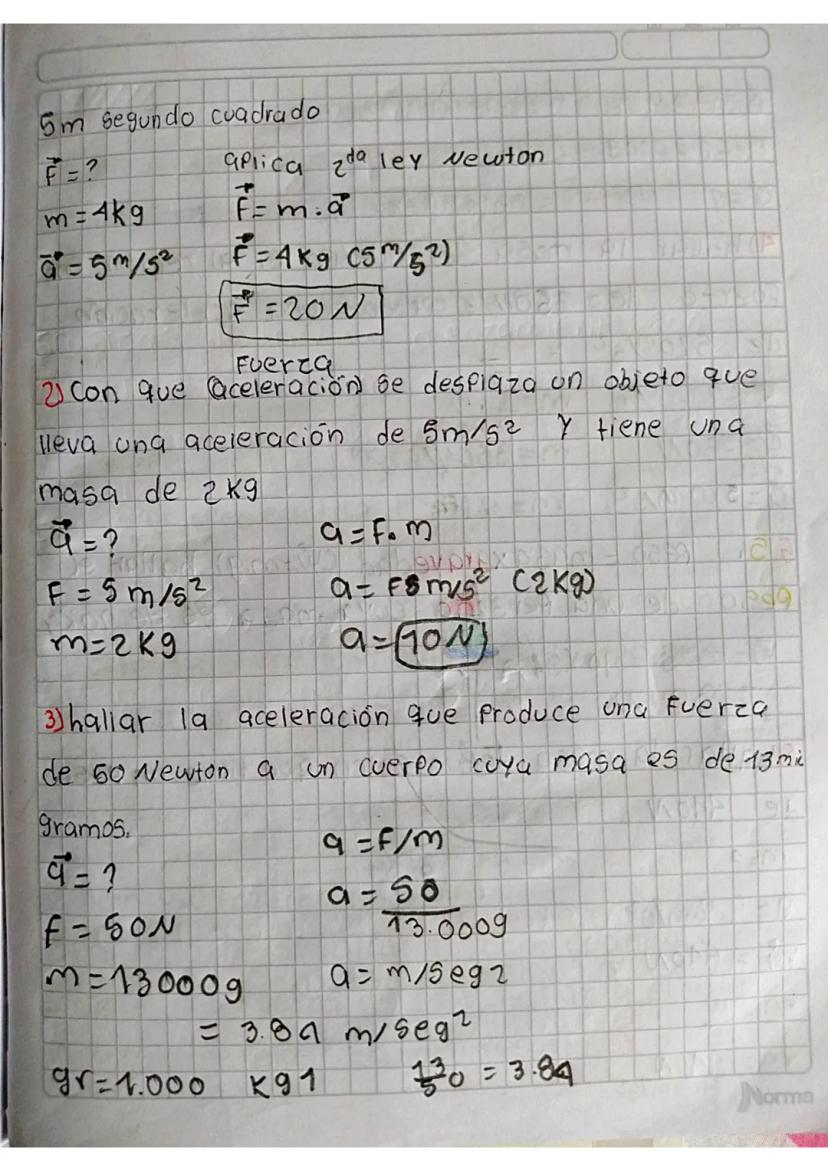 5m segundo cuadrado
F = ? aplica 2da ley Newton
m = 4Kg F = m . a
a = 5 m/s² F = 4Kg (5 m/s²)
F = 20 N
Fuerza
2) Con que (aceleración) se desplaza un objeto que
lleva una aceleración de 5m/s² y tiene una
masa de 2Kg
a = ? a = F . m
F = 5 m/s² a = F5 m/s² (2Kg)
m = 2Kg a = 10 N
3) hallar la aceleración que produce una fuerza
de 50 Newton a un cuerpo cuya masa es de 13 mi
gramos.
a = ? a = F/m
f = 50N a = 50 / 13.000g
m = 13000g a = m/seg2
= 3.84 m/seg²
gr = 1.000 Kg 1 13/50 = 3.84
Norma